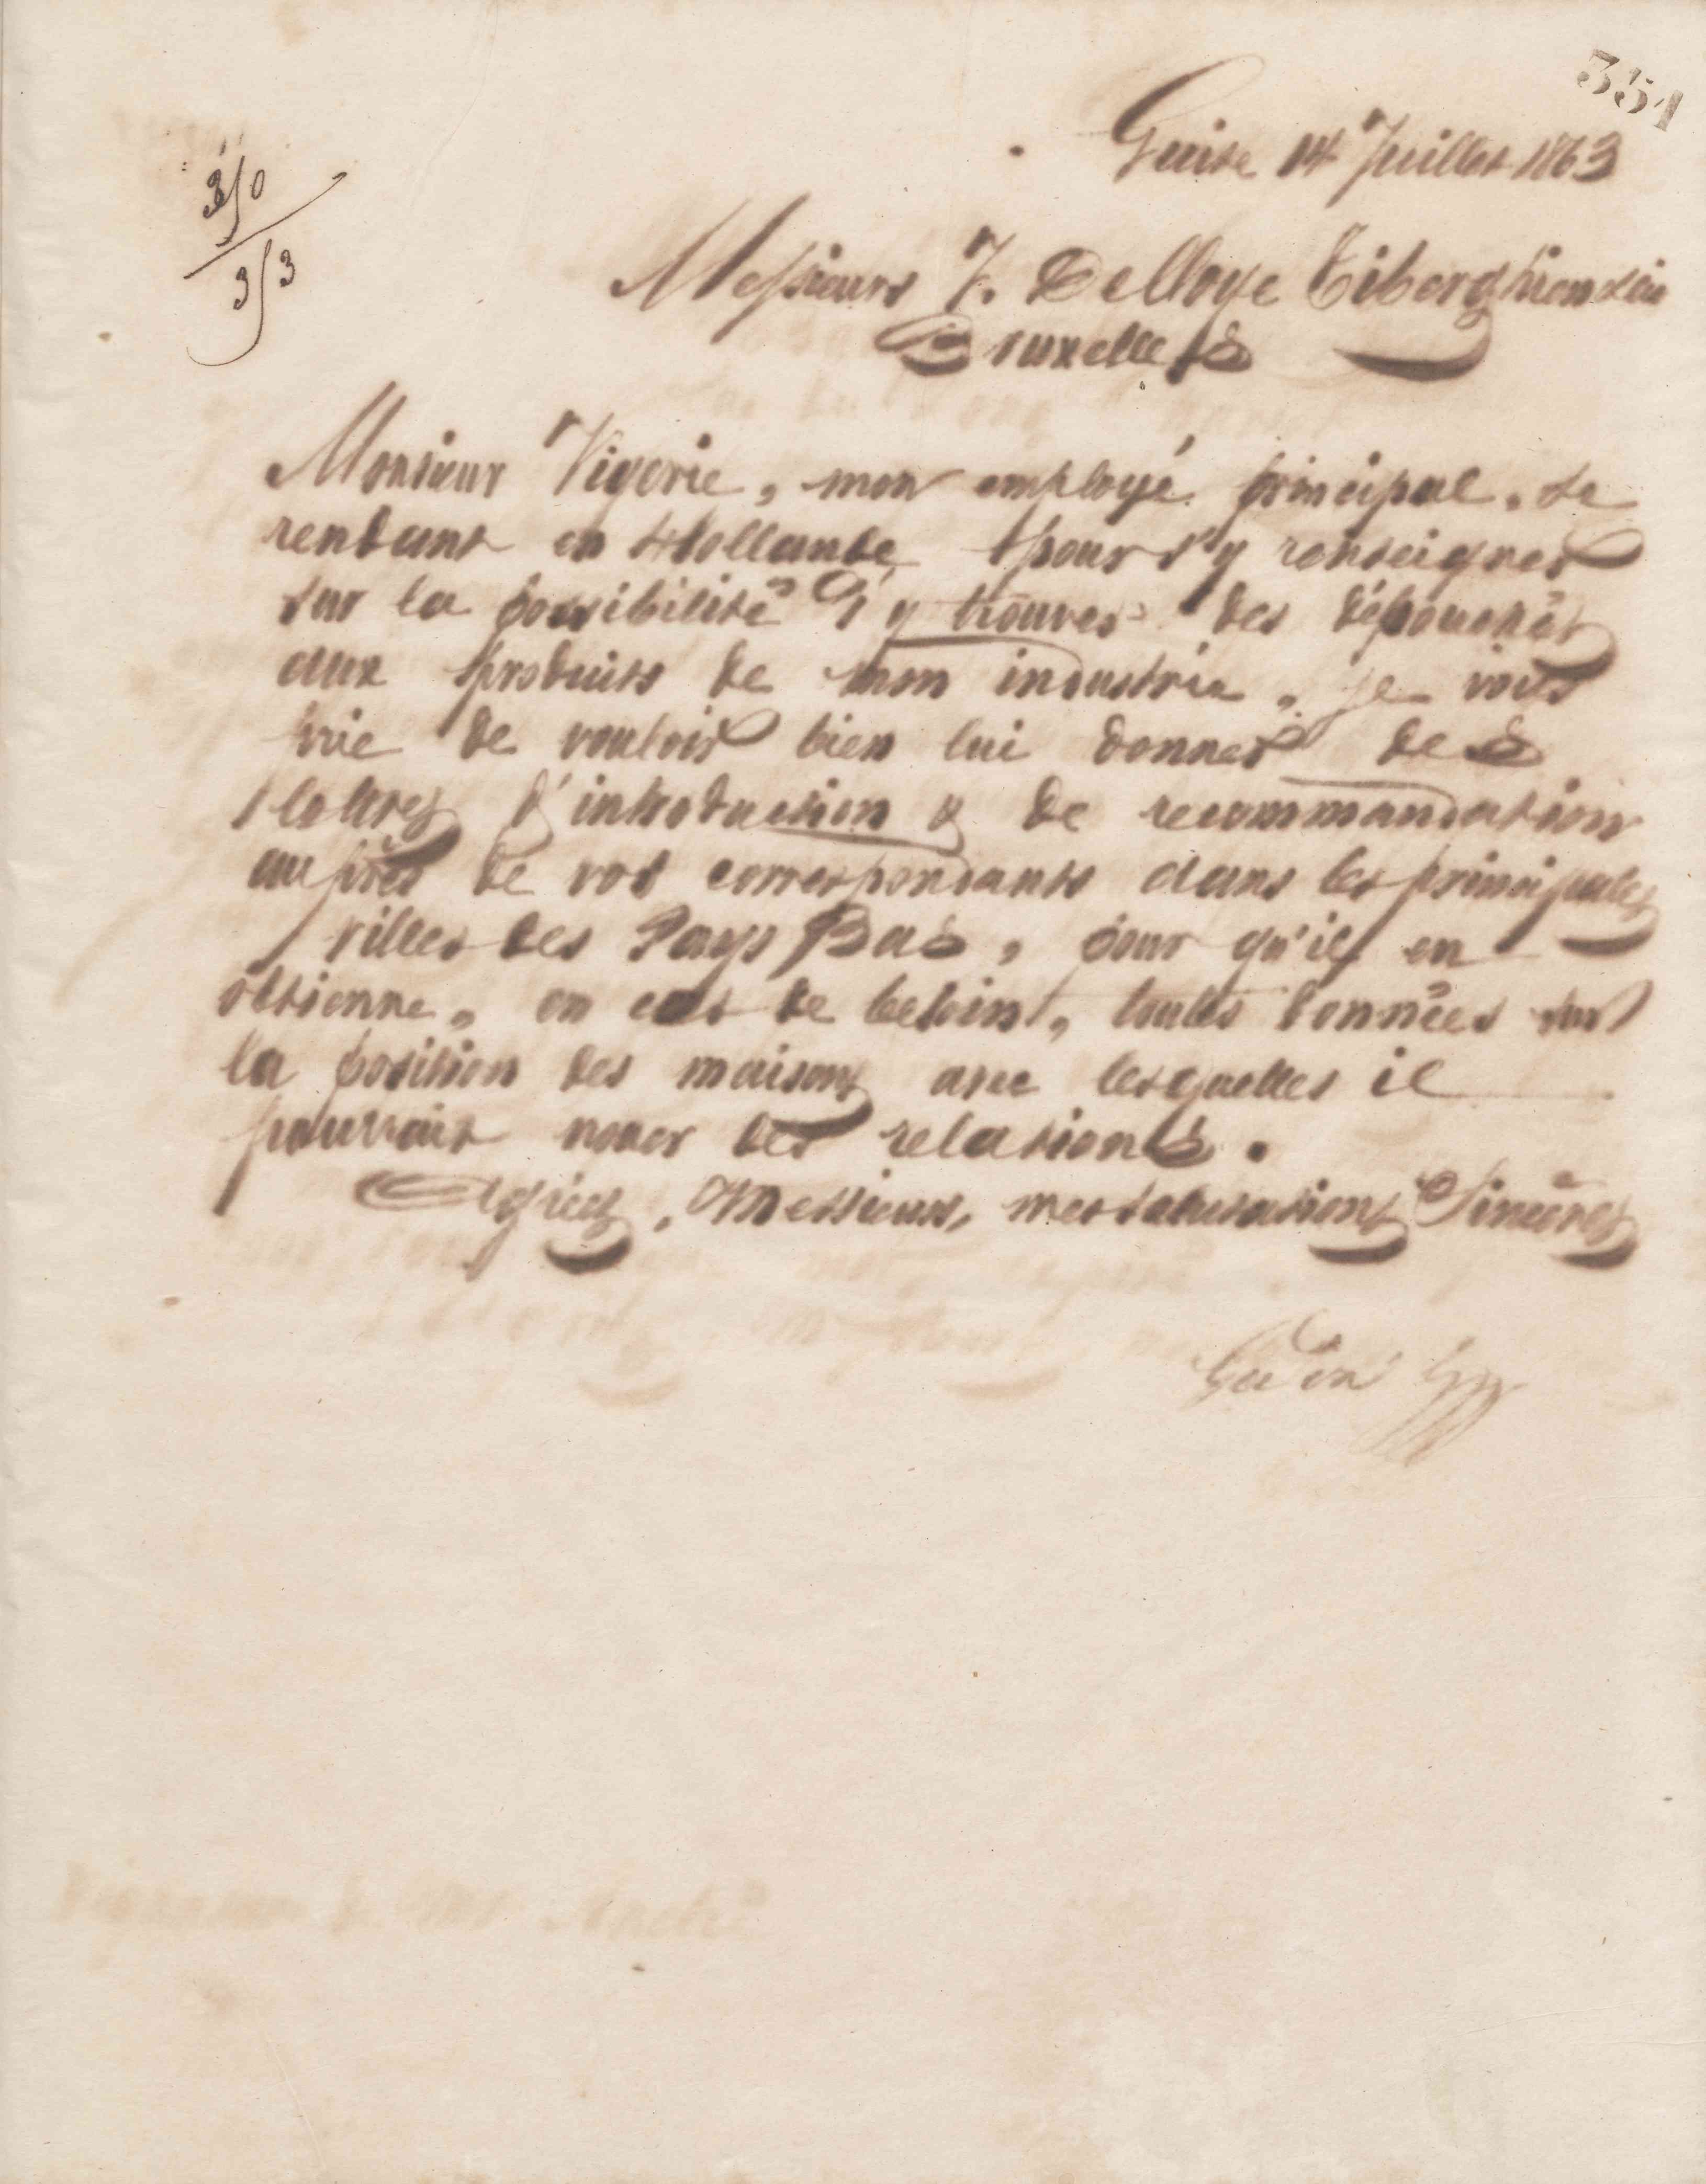 351
Guise 14 Juillet 1863
350
353
Messieurs F. Delloye Tiberghien & Cie
Bruxelles
Monsieur Vigerie, mon employé principal, se
rendant en Hollande pour s'y renseigner
sur la possibilité d'y trouver des débouchés
aux produits de mon industrie, je vous
prie de vouloir bien lui donner des
lettres d'introduction & de recommandation
auprès de vos correspondants dans les principales
villes des Pays Bas, pour qu'il en
obtienne, en cas de besoin, toutes données sur
la position des maisons avec lesquelles il
pourrait nouer des relations.
Agréez, Messieurs, mes salutations sincères
Godin